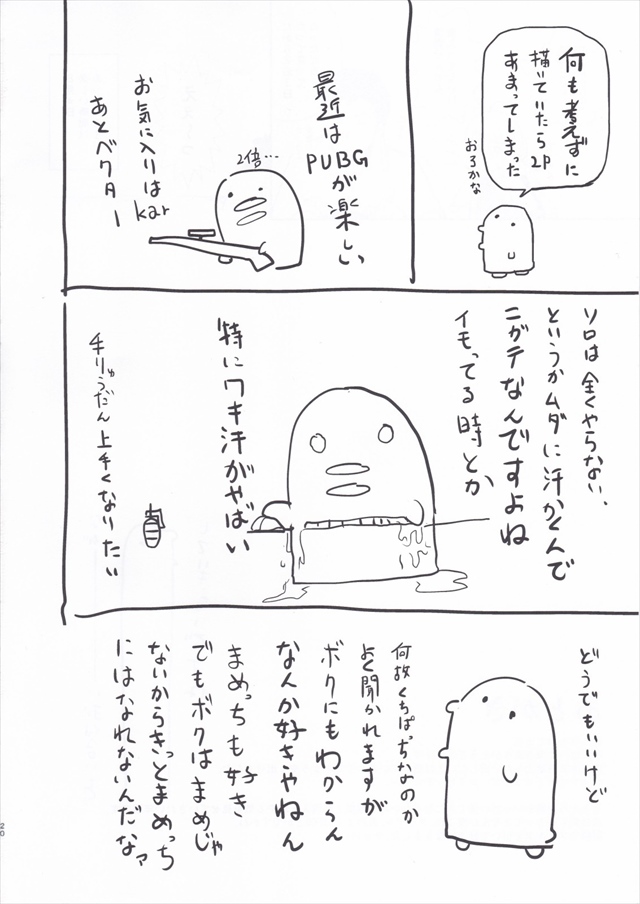 何も考えずに
描いていたら2P
あまってしまった
おろかな
最近は
PUBG
が楽しい
2倍…
お気に入りは
kar
あとベクター
ソロは全くやらない、
というかムダに汗かくんで
ニガテなんですよね
イモってる時とか
特にワキ汗がやばい
手りゅうだん上手くなりたい
どうでもいいけど
何故くちぱっちなのか
よく聞かれますが
ボクにもわからん
なんか好きやねん
まめっちも好き
でもボクはまめじゃ
ないからきっとまめっち
にはなれないんだなァ
20